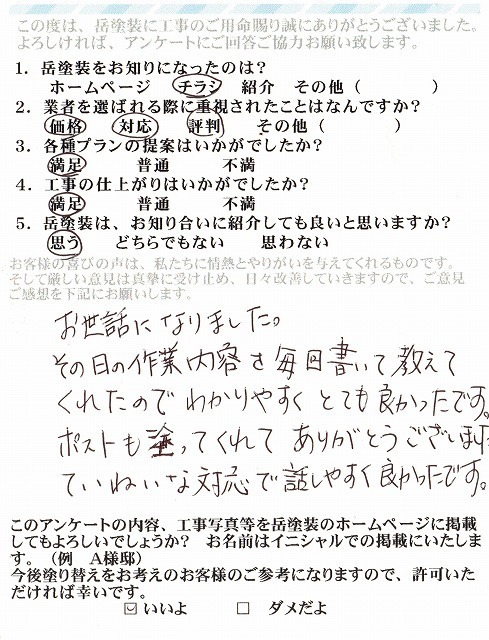 この度は、岳塗装に工事のご用命賜り誠にありがとうございました。
よろしければ、アンケートにご回答ご協力お願い致します。
1．岳塗装をお知りになったのは？
ホームページ　チラシ　紹介　その他（　　　　）
2．業者を選ばれる際に重視されたことはなんですか？
価格　対応　評判　その他（　　　　）
3．各種プランの提案はいかがでしたか？
満足　普通　不満
4．工事の仕上がりはいかがでしたか？
満足　普通　不満
5．岳塗装は、お知り合いに紹介しても良いと思いますか？
思う　どちらでもない　思わない
お客様の喜びの声は、私たちに情熱とやりがいを与えてくれるものです。
そして厳しい意見は真摯に受け止め、日々改善していきますので、ご意見
ご感想を下記にお願いします。
お世話になりました。
その日の作業内容を毎回書いて教えて
くれたのでわかりやすくとても良かったです。
ポストも塗ってくれてありがとうございます
ていねいな対応で話しやすく良かったです。
このアンケートの内容、工事写真等を岳塗装のホームページに掲載
してもよろしいでしょうか？　お名前はイニシャルでの掲載にいたしま
す。（例　A様邸）
今後塗り替えをお考えのお客様のご参考になりますので、許可いた
だければ幸いです。
☑ いいよ　□ ダメだよ